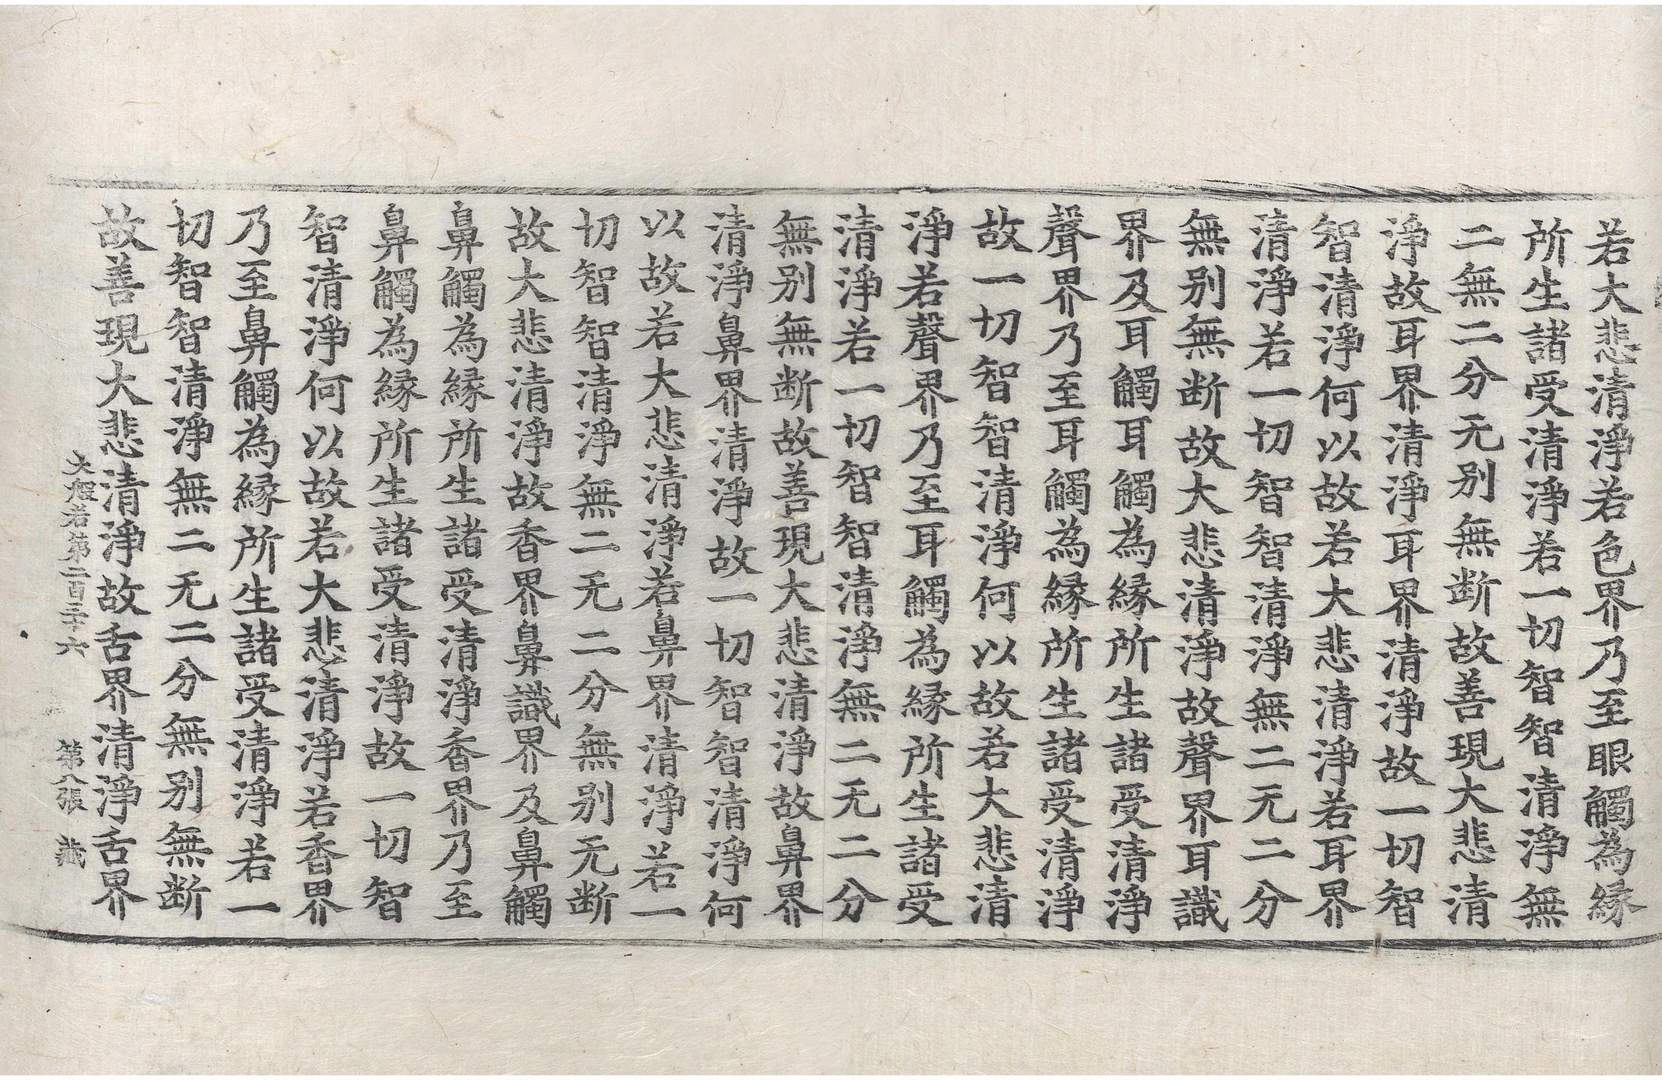 若大悲清淨若色界乃至眼觸為緣
所生諸受清淨若一切智智清淨無
二無二分无別無断故善現大悲清
淨故耳界清淨耳界清淨故一切智
智清淨何以故若大悲清淨若耳界
清淨若一切智智清淨無二无二分
無別無断故大悲清淨故聲界耳識
界及耳觸耳觸為緣所生諸受清淨
聲界乃至耳觸為緣所生諸受清淨
故一切智智清淨何以故若大悲清
淨若聲界乃至耳觸為緣所生諸受
清淨若一切智智清淨無二无二分
無別無断故善現大悲清淨故鼻界
清淨鼻界清淨故一切智智清淨何
以故若大悲清淨若鼻界清淨若一
切智智清淨無二无二分無別无断
故大悲清淨故香界鼻識界及鼻觸
鼻觸為緣所生諸受清淨香界乃至
鼻觸為緣所生諸受清淨故一切智
智清淨何以故若大悲清淨若香界
乃至鼻觸為緣所生諸受清淨若一
切智智清淨無二无二分無別無断
故善現大悲清淨故舌界清淨舌界
大般若第二百三十六 第八張 藏